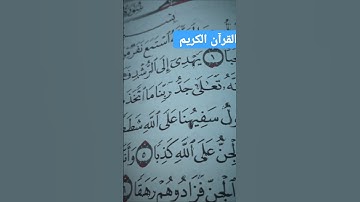 القرآن الكريم
ٱسْتَمَعَ نَفَرٌ مِّنَ
يَهْدِىٓ إِلَى ٱلرُّشْدِ
تَعَٰلَىٰ جَدُّ رَبِّنَا مَا ٱتَّخَذَ
سَفِيهُنَا عَلَى ٱللَّهِ شَطَطًا
ٱلْجِنُّ عَلَى ٱللَّهِ كَذِبًا ٥ وَأَنَّ
ٱلْجِنِّ فَزَادُوهُمْ رَهَقًا